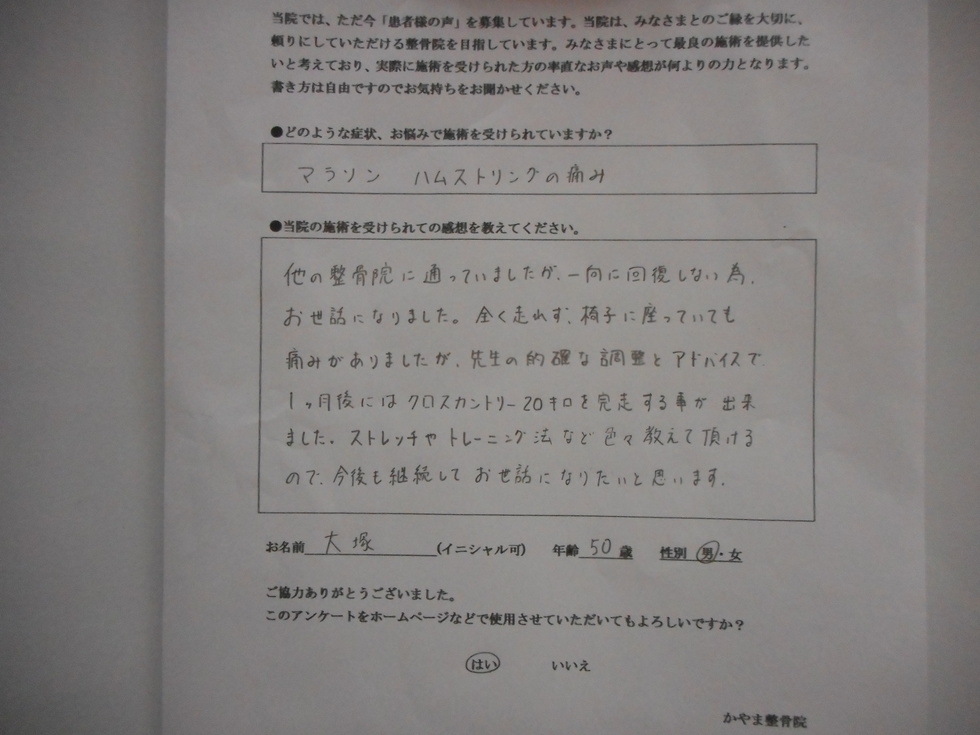 当院では、ただ今「患者様の声」を募集しています。当院は、みなさまとのご縁を大切に、
頼りにしていただける整骨院を目指しています。みなさまにとって最良の施術を提供した
いと考えており、実際に施術を受けられた方の率直なお声や感想が何よりの力となります。
書き方は自由ですのでお気持ちをお聞かせください。
●どのような症状、お悩みで施術を受けられていますか？
マラソン ハムストリングの痛み
●当院の施術を受けられての感想を教えてください。
他の整骨院に通っていましたが、一向に回復しない為、
お世話になりました。全く走れず、椅子に座っていても
痛みがありましたが、先生の的確な調整とアドバイスで
1ヶ月後にはクロスカントリー20キロを完走する事が出来
ました。ストレッチやトレーニング法など色々教えて頂ける
ので、今後も継続してお世話になりたいと思います。
お名前 大塚 (イニシャル可) 年齢 50 歳 性別 男・女
ご協力ありがとうございました。
このアンケートをホームページなどで使用させていただいてもよろしいですか？
はい いいえ
かやま整骨院